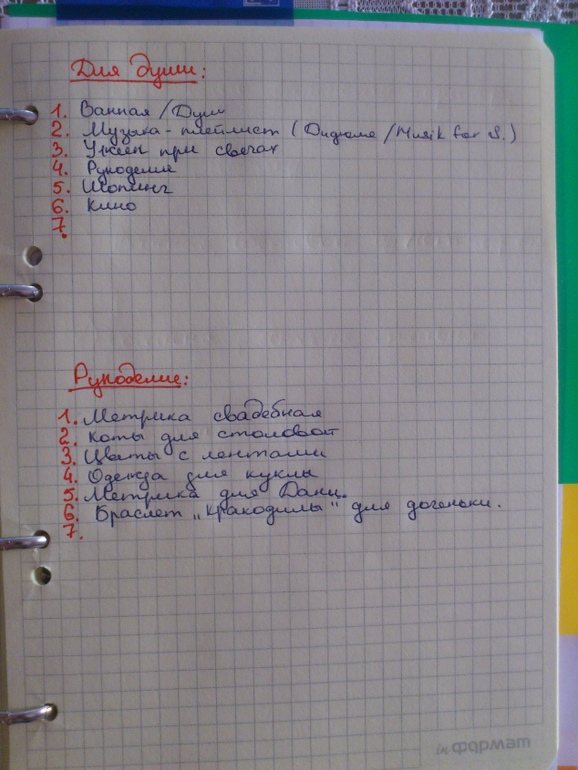 Для души:
1. Ванная / Душ
2. Музыка - плейлист ( Дидюля / Musik for S. )
3. Ужин при свечах
4. Рукоделие
5. Шопинг
6. Кино
7.
Рукоделие:
1. Метрика свадебная
2. Коты для столовой
3. Цветы с лентами
4. Одежда для куклы
5. Метрика для Дани.
6. Браслет „Кракодилы" для доченьки.
7.
inФОРМАТ